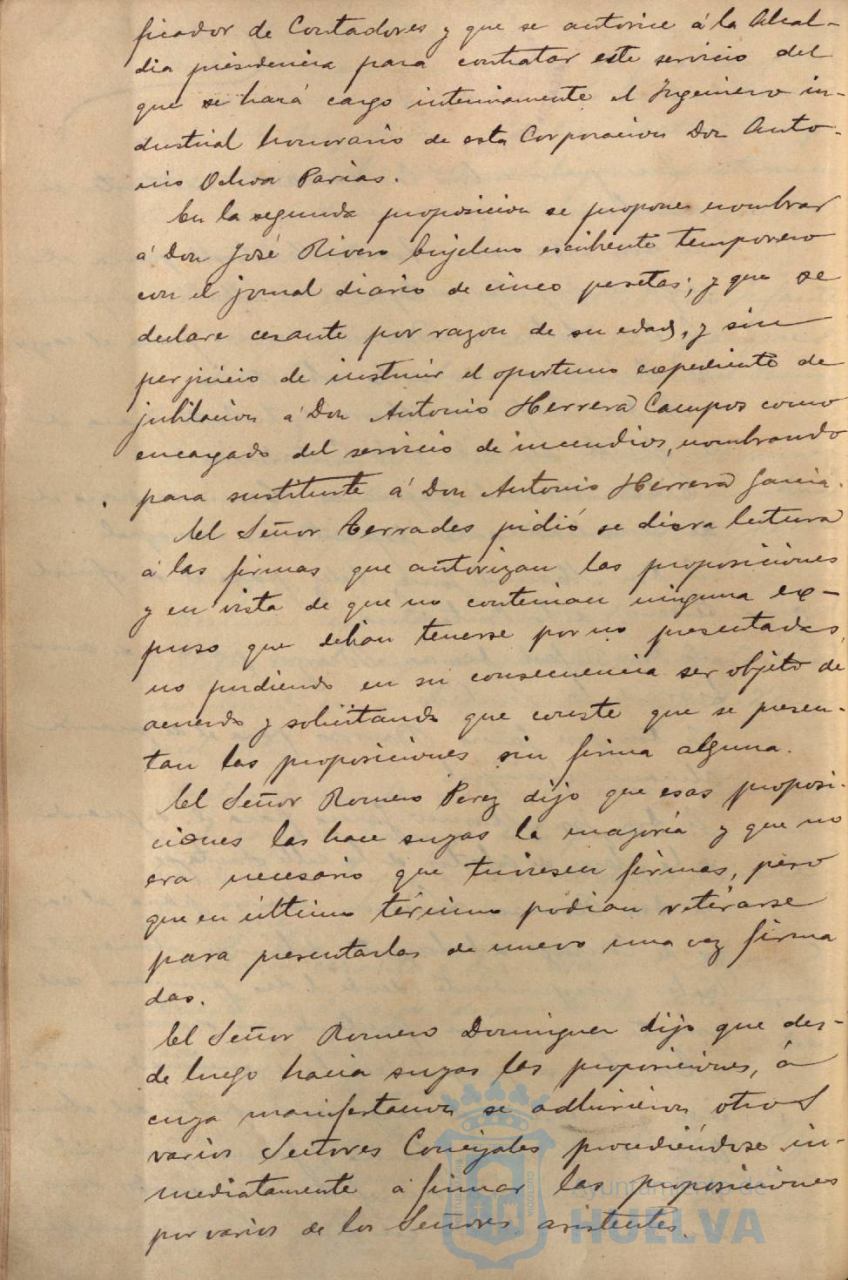 ficador de Contadores y que se autorice á la Alcal-
dia presidencia para contratar este servicio del
que se hará cargo interinamente el Ingeniero in-
dustrial honorario de esta Corporacion Don Anto-
nio Ochoa Parias.
En la segunda proposicion se propone nombrar
á Don José Rivero escribiente temporero
con el jornal diario de cinco pesetas; y que se
declare cesante por razon de su edad, y sin
perjuicio de instruir el oportuno expediente de
jubilacion á Don Antonio Herrera Campos como
encargado del servicio de incendios, nombrando
para sustituirte á Don Antonio Herrera Garcia.
El Señor Terrades pidió se diera lectura
á las firmas que autorizan las proposiciones
y en vista de que no contenian ninguna ex-
puso que debian tenerse por no presentadas,
no pudiendo en su consecuencia ser objeto de
acuerdo y solicitando que conste que se presen-
tan las proposiciones sin firma alguna.
El Señor Romero Perez dijo que esas proposi-
ciones las hace suyas la mayoria y que no
era necesario que tuviesen firmas, pero
que en último término podian retirarse
para presentarlas de nuevo una vez firma
das.
El Señor Romero Dominguez dijo que des-
de luego hacia suyas las proposiciones, á
cuya manifestacion se adhirieron otros
varios Señores Concejales procediéndose in-
mediatamente á firmar las proposiciones
por varios de los Señores asistentes.
Ayuntamiento de
HUELVA